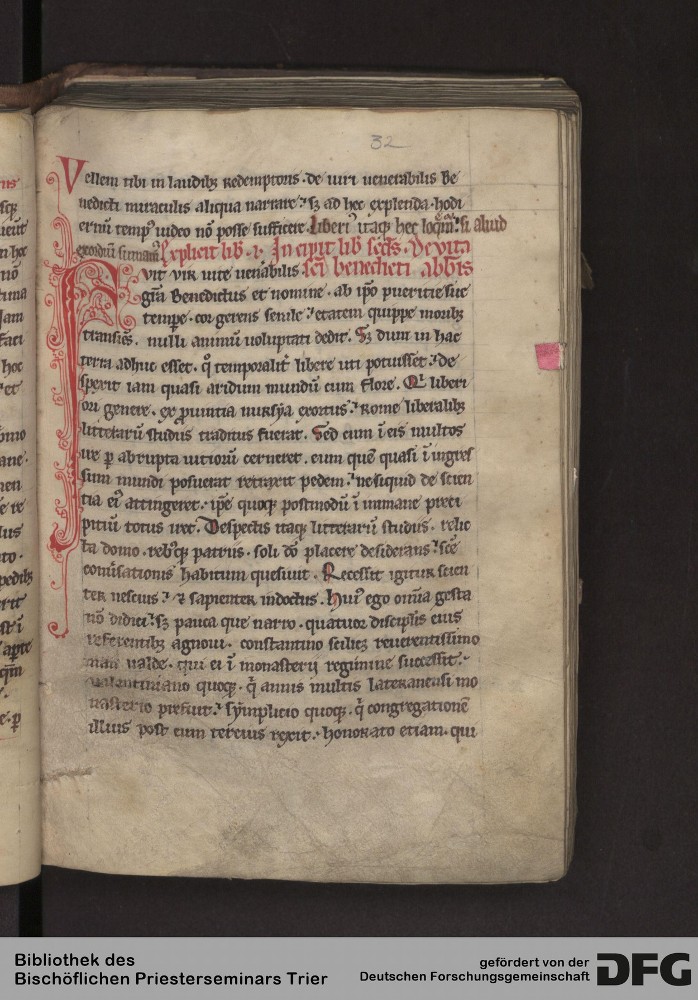 32
Vellem tibi in laudibꝫ Redemptoris · de uiri uenerabilis Be
nedicti miraculis aliqua narrare · sꝫ ad hec explenda · hodi
ernū temp᷒ uideo nō posse sufficere · Liberi᷒ itaqꝫ hec loq̄m̄ · si aliud
exordiū sumam᷒ Explicit lib̄ · i · Incipit lib̄ scd̄s · De uita
Fuit vir uite uen̄abilis sc̄i benedicti abb̄is
gr̄a Benedictus et nomine · ab ip̄o pueritie sue
temp̄e · cor gerens senile · etatem quippe moribꝫ
transiēs · nulli animū uoluptati dedit · Sꝫ dum in hac
terra adhuc esset · q̊ temporalit̄ libere uti potuisset · de
spexit iam quasi aridum mundū cum flore · Qi liberi
ori genere · ex ꝓuintia nursya exortus · Rome liberalibꝫ
litterarū studiis traditus fuerat · Sed cum ī eis multos
ire ꝑ abrupta uitiorū cerneret · eum quē quasi ī ingres
sum mundi posuerat retraxit pedem · ne siquid de scien
tia ei᷒ attingeret · ip̄e quoqꝫ postmodū ī inmane preci
pitiū totus iret · Despectis itaqꝫ litterarū studiis · relic
ta domo · rebꝫqꝫ patris · soli dō placere desiderans · sc̄e
conu̓sationis habitum quesiuit · Recessit igitur scien
ter nescius · ⁊ sapienter indoctus · Hui᷒ ego om̄ia gesta
nō didici · sꝫ pauca que narro · quatuor discipl̄is eius
referentibꝫ agnoui · constantino scilicꝫ reuerentissimo
uiro ualde · qui ei ī monasterii regimine successit ·
ualentiniano quoqꝫ · q̄ annis multis Lateranensi mo
nasterio prefuit · symplicio quoqꝫ · q̄ congregationē
illius post eum tercius rexit · honorato etiam · qui
Bibliothek des
Bischöflichen Priesterseminars Trier
gefördert von der
Deutschen Forschungsgemeinschaft
DFG